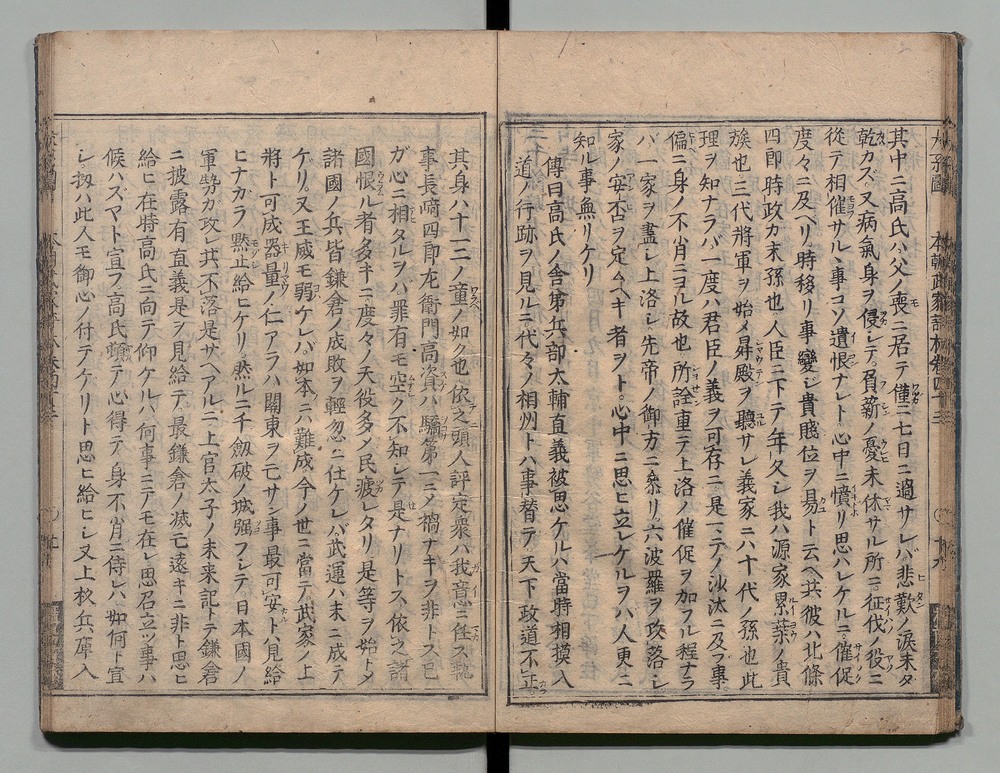 其中ニ高氏ハ父ノ喪ニ居テ僅ニ七日ニ過サレバ悲歎ノ涙未タ
乾カズ又病氣身ヲ侵レテ負薪ノ憂未休サル所ニ征伐ノ役ニ
從テ相催サルヽ事コソ遺恨ナレト心中ニ憤リ思ハレケルニ催促
度々ニ及ヘリ時移リ事變シ貴賤位ヲ易ト云ヘ共彼ハ北條
四郎時政カ末孫也人臣ニ下テ年久シ我ハ源家累葉ノ貴
族也三代將軍ヲ始メ昇殿ヲ聽サレ義家ニハ十代ノ孫也此
理ヲ知ナラバ一度ハ君臣ノ義ヲ可存ニ是ニテノ沙汰ニ及ブ事
偏ニ身ノ不肖ニヨル故也所詮重テ上洛ノ催促ヲ加フル程ナラ
バ一家ヲ盡シ上洛シ先帝ノ御方ニ參リ六波羅ヲ攻落シ
家ノ安否ヲ定ムヘキ者ヲト心中ニ思ヒ立レケルヲハ人更ニ
知ル事無リケリ
傳曰高氏ノ舎弟兵部太輔直義被思ケルハ當時相摸入
道ノ行跡ヲ見ルニ代々ノ相州トハ事替テ天下政道不正
其身ハ十二三ノ童ノ如ク也依之頭人評定衆ハ我意ニ任ス執
事長崎四郎左衛門高資ハ驕第一ニメ禍ナキヲ非トス已
ガ心ニ相タルヲハ罪有モ空ク不知シテ是ナリトス依之諸
國恨ル者多キニ度々ノ天役多メ民疲レタリ是等ヲ始トメ
諸國ノ兵皆鎌倉ノ成敗ヲ輕忽ニ仕ケレバ武運ハ末ニ成テ
ケリ又王威モ弱ケレバ如本ニハ難成今ノ世ニ當テ武家ノ上
將ト可成器量ノ仁アラハ關東ヲ亡サン事最可安トハ見給
ヒナカラ黙止給ヒケリ然ルニ千劔破ノ城强フシテ日本國ノ
軍勢カ攻レ共不落是サヘアルニ上官太子ノ未来記トテ鎌倉
ニ披露有直義是ヲ見給テ最鎌倉ノ滅亡遠キニ非ト思ヒ
給ヒ在時高氏ニ向テ仰ケルハ何事ニテモ在レ思召立ツ事ハ
候ハズヤト宣フ高氏聴テ心得テ身不肖ニ侍レハ如何ト宣
シ扨ハ此人モ御心ノ付テケリト思ヒ給ヒシ又上杦兵庫入